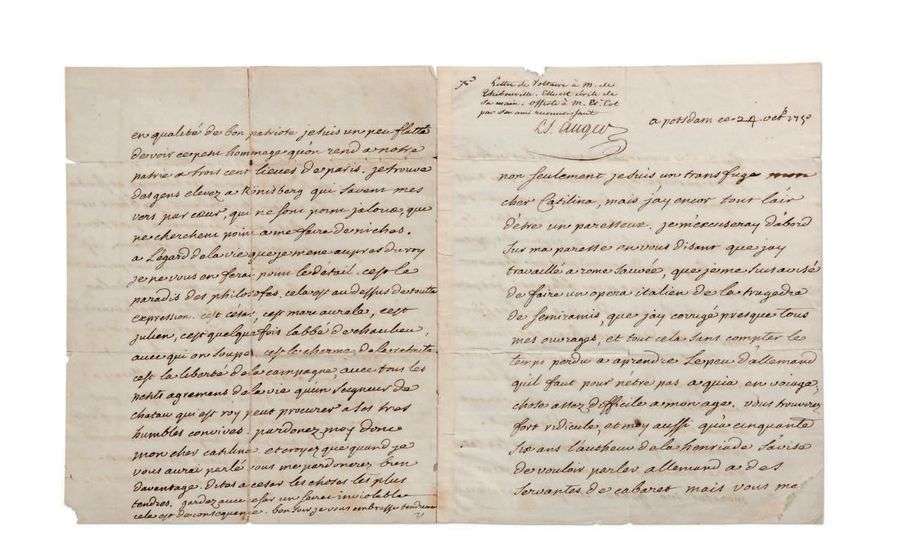 en qualité de bon patriote je suis un peu flatté
de voir ce petit hommage qu'on rend a notre
patrie a trois cent lieues de paris. je trouve
des gens elevez a Konisberg qui savent mes
vers par cœur, qui ne sont point jaloux, qui
ne cherchent point a me faire de niches.
a Légard de la vie que je mene aupres du roy
je ne vous en ferai point le détail. c'est le
paradis des philosofes. cela est au dessus de toute
expression. c'est cesar, c'est marc aurele, c'est
julien, c'est quelque fois l'abbé de chaulieu,
avec qui on soupe. c'est le charme de la retraite
c'est la liberté de la campagne, avec tous les
petits agrements de la vie qu'un seigneur de
chateau qui est roy peut procurer a ses tres
humbles convives. pardonez moy donc
mon cher catilina et croyez que quand je
vous aurai parlé vous me pardonerez bien
davantage. dites a cesar les choses les plus
tendres, gardez avec cesar un secret inviolable
cela est de consequence. bon soir je vous embrasse tendrement
Lettre de Voltaire à M. de
Thibouville. Elle est écrite de
sa main. Offerte à M.
par son ami reconnaissant
L S auger
a potsdam ce 24 octb 1750
non seulement je suis un transfuge mon
cher Catilina, mais j'ay encor tout l'air
d'être un paresseux. je m'excuseray d'abord
sur ma paresse en vous disant que j'ay
travaillé a rome sauvée, que je me suis avisé
de faire un opera italien de la tragedie
de semiramis, que j'ay corrigé presque tous
mes ouvrages, et tout cela sans compter le
temps perdu a aprendre le peu d'allemand
qu'il faut pour n'être pas a quia en voiage,
chose assez difficile a mon age. vous trouverez
fort ridicule, et moy aussi qu'a cinquante
six ans l'auteur de la henriade s'avise
de vouloir parler allemand a des
servantes de cabaret mais vous me